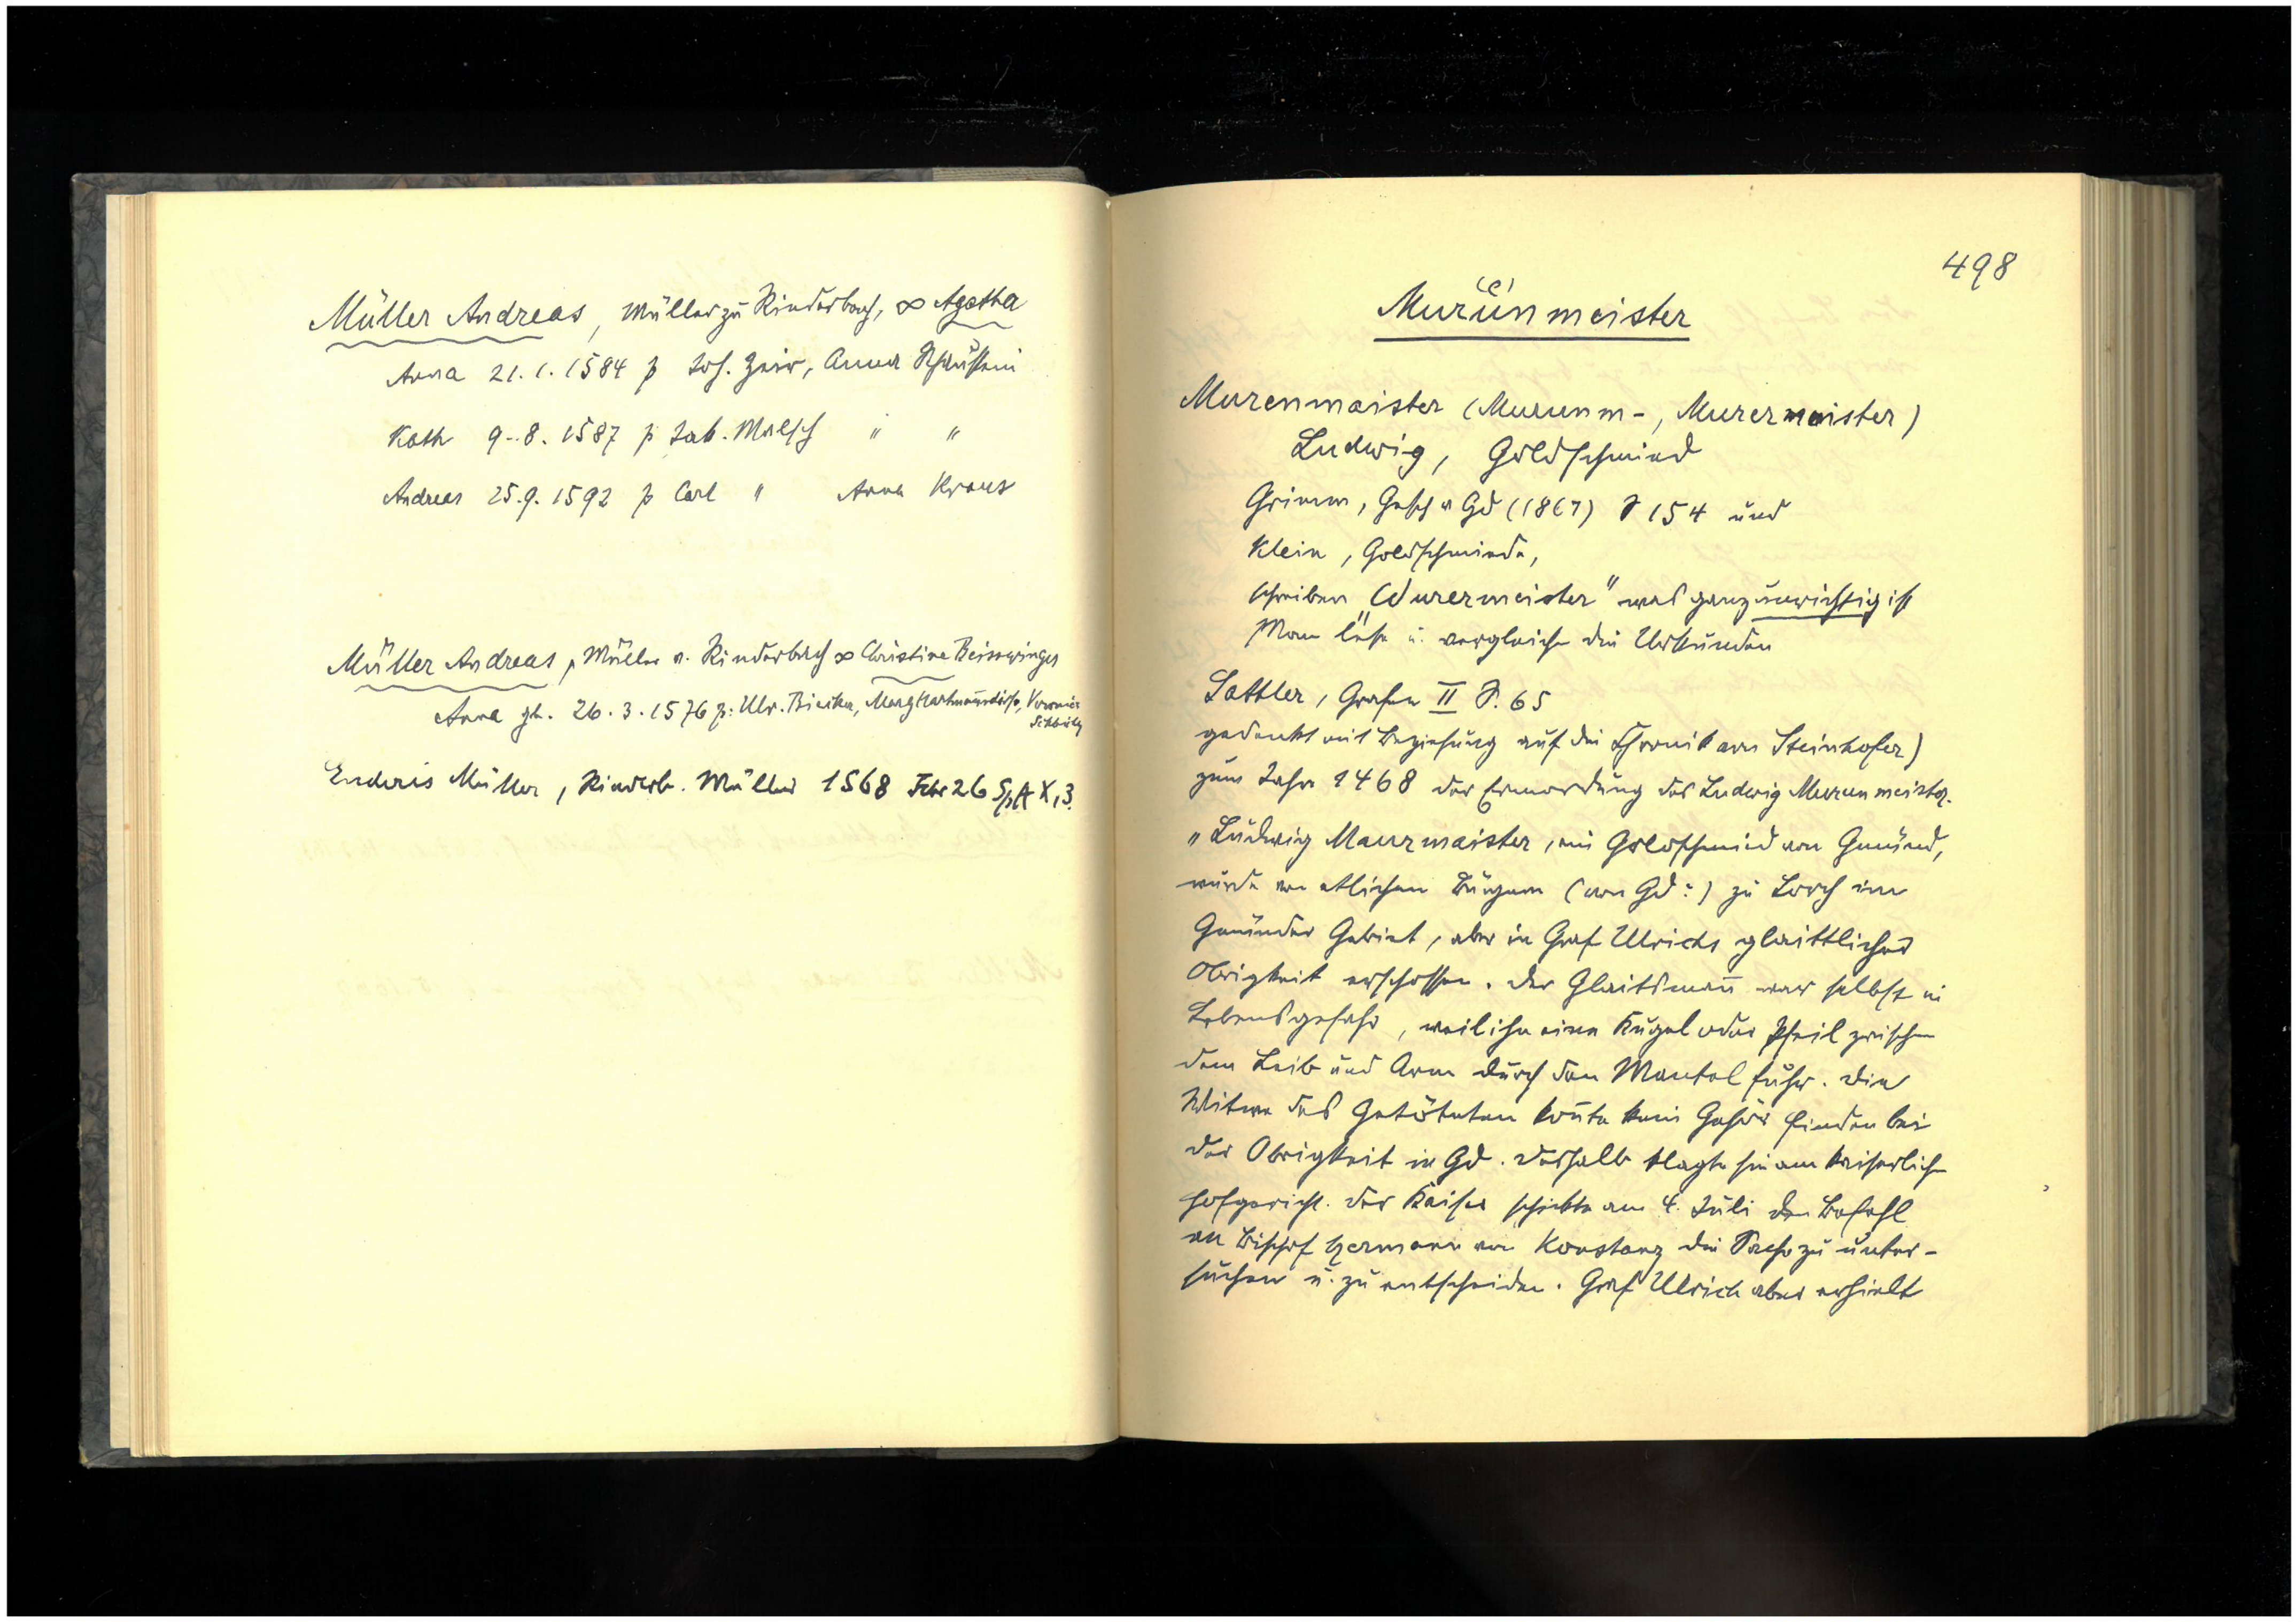 Müller Andreas, Müller zu Rinderbach, ∞ Agatha
Anna 21.1.1584 p Joh. , Anna
Kath 9.8.1587 p Jak. Malsch " "
Andreas 25.9.1592 p Carl " Anna Kraus
Müller Andreas, Müller v. Rinderbach ∞ Christine Beisswinger
Anna gb. 26.3.1576 p: Ulr. , Marg
Enderis Müller, Rinderb. Müller 1568 Febr 26 SpA X,3.
498
(e)
Murünmeister
Murenmaister (Murunm-, Murermaister)
Ludwig, Goldschmied
Grimm, Gesch v Gd (1867) S 154 und
Klein, Goldschmiede,
schreiben "Wurermeister" was ganz unrichtig ist
Man lese u. vergleiche die Urkunden
Sattler, Grafen II S. 65
gedenkt mit Beziehung auf die Chronik von Steinhofer)
zum Jahr 1468 der Ermordung des Ludwig Murunmeister.
"Ludwig Maurmaister, ein Goldschmied von Gmünd,
wurde von etlichen Bürgern (von Gd:) zu Lorch im
Gmünder Gebiet, aber in Graf Ulrichs glaittlicher
Obrigkeit erschossen. Der Glaitsmann war selbst in
Lebensgefahr, weil ihm eine Kugel oder Pfeil zwischen
dem Leib und Arm durch den Mantel fuhr. Die
Witwe des Getöteten konnte kein Gehör finden bei
der Obrigkeit in Gd. Deshalb klagte sie am kaiserlichen
Hofgericht. Der Kaiser schickte am 4. Juli den Befehl
an Bischof Hermann von Konstanz die Sache zu unter-
suchen u. zu entscheiden. Graf Ulrich aber erhielt